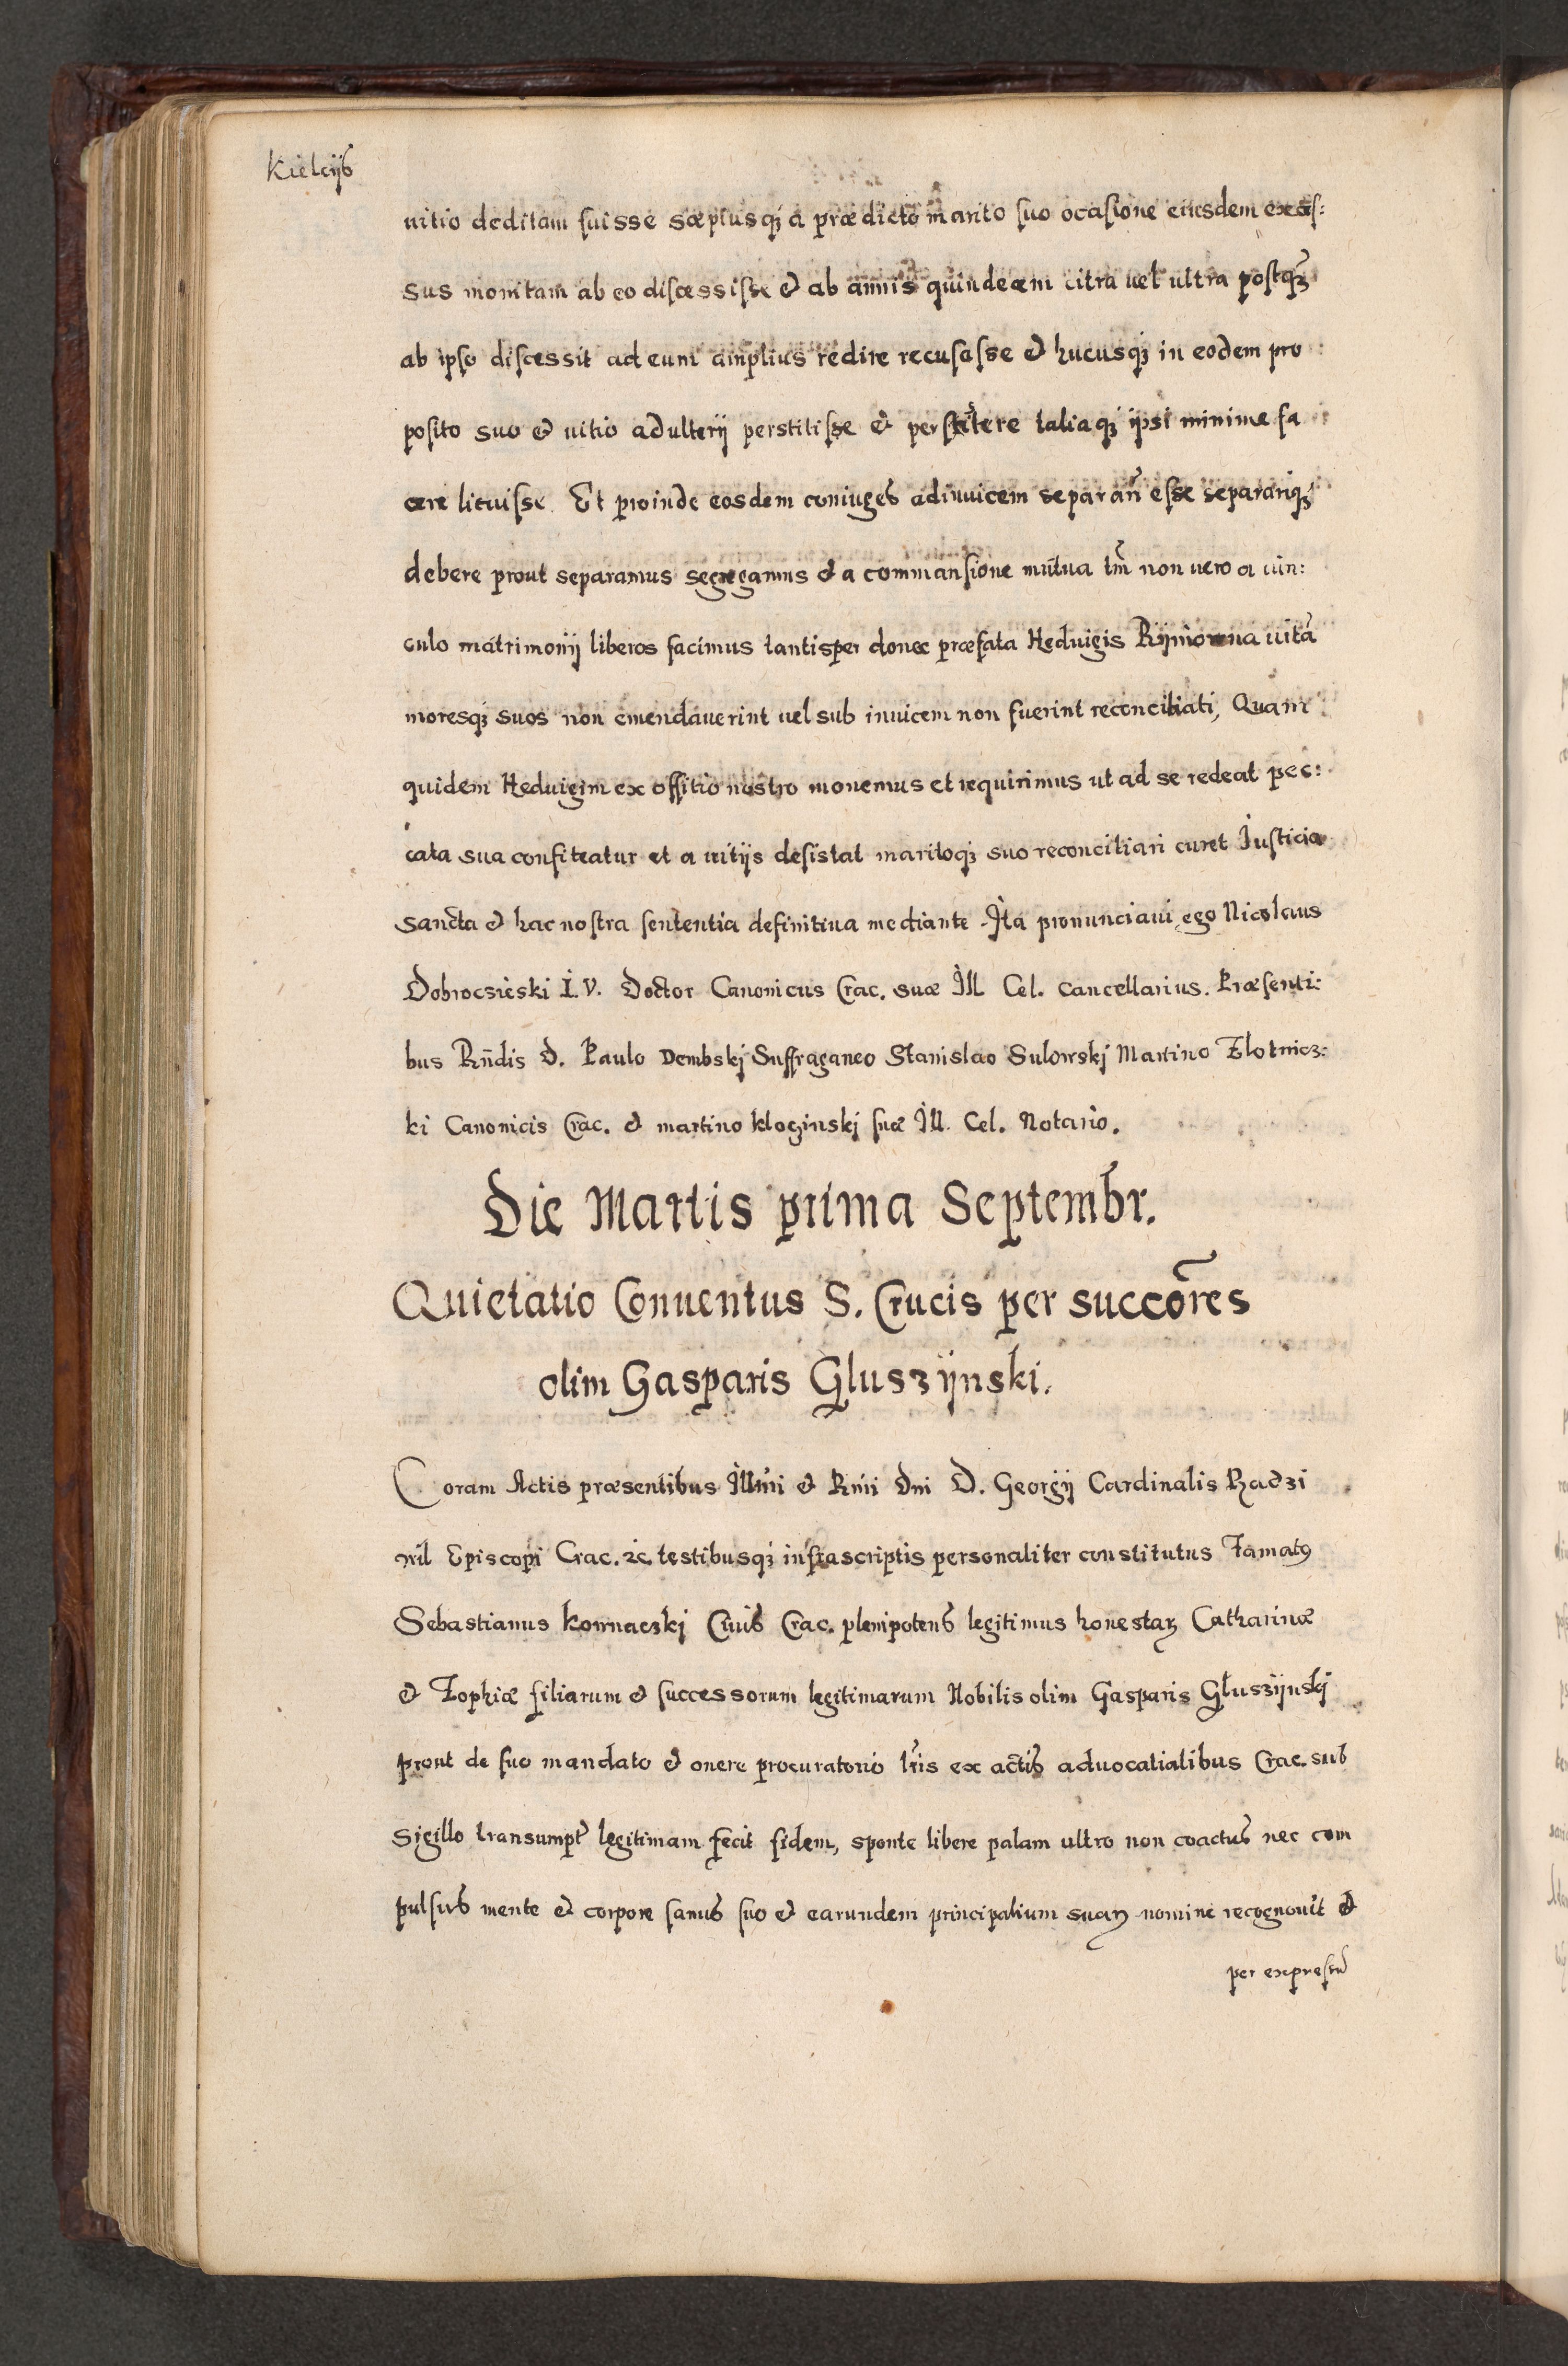 Kielcijs
uitio deditam fuisse sæpiusq₃ a prædicto marito suo ocasione eiusdem exces:
sus monitam ab eo discessisse & ab annis quindecem citra uel ultra postq₃
ab ipso discessit ad eum amplius redire recusasse & hucusq₃ in eodem pro
posito suo & uitio adulterij perstitisse & persistere taliaq₃ ipsi minime fa
cere licuisse. Et proinde eosdem coniuges adinuicem separañ esse separariq₃
debere prout separamus segregamus & a commansione mutua tm̃ non uero a uin:
culo matrimonij liberos facimus tantisper donec præfata Heduigis Rijmowna uitã
moresq₃ suos non emendauerint uel sub inuicem non fuerint reconciliati, Quam
quidem Heduigim ex offitio nostro monemus et requirimus ut ad se redeat pec:
cata sua confiteatur et a uitijs desistat maritoq₃ suo reconciliari curet Iusticia
sancta & hac nostra sententia definitiua mediante. Ita pronunciaui ego Nicolaus
Dobrocsieski I. V. Doctor Canonicus Crac. suæ Ill Cel. Cancellarius. Præsenti:
bus Rñdis D. Paulo Dembskj Suffraganeo Stanislao Sulowskj Martino Zlotnicz:
ki Canonicis Crac. & martino kloginskj suæ Ill. Cel. Notario.
Die Martis prima Septembr.
Quietatio Conuentus S. Crucis per succõres
olim Gasparis Gluszijnski.
Coram Actis præsentibus Illm̃i & Rm̃i Dni D. Georgij Cardinalis Radzi
wil Episcopi Crac. ꝛc. testibusq₃ infrascriptis personaliter constitutus Famatꝯ
Sebastianus kornaczkj Ciuis Crac. plenipotens legitimus honestaꝝ Catharinæ
& Zophiæ filiarum & successorum legitimarum Nobilis olim Gasparis Gluszijnskj
prout de suo mandato & onere procuratorio lr̃is ex actis aduocatialibus Crac. sub
sigillo transumpt̃ legitimam fecit fidem, sponte libere palam ultro non coactus nec com
pulsus mente & corpore sanus suo & earundem principalium suaꝝ nomine recognouit &
per expressũ